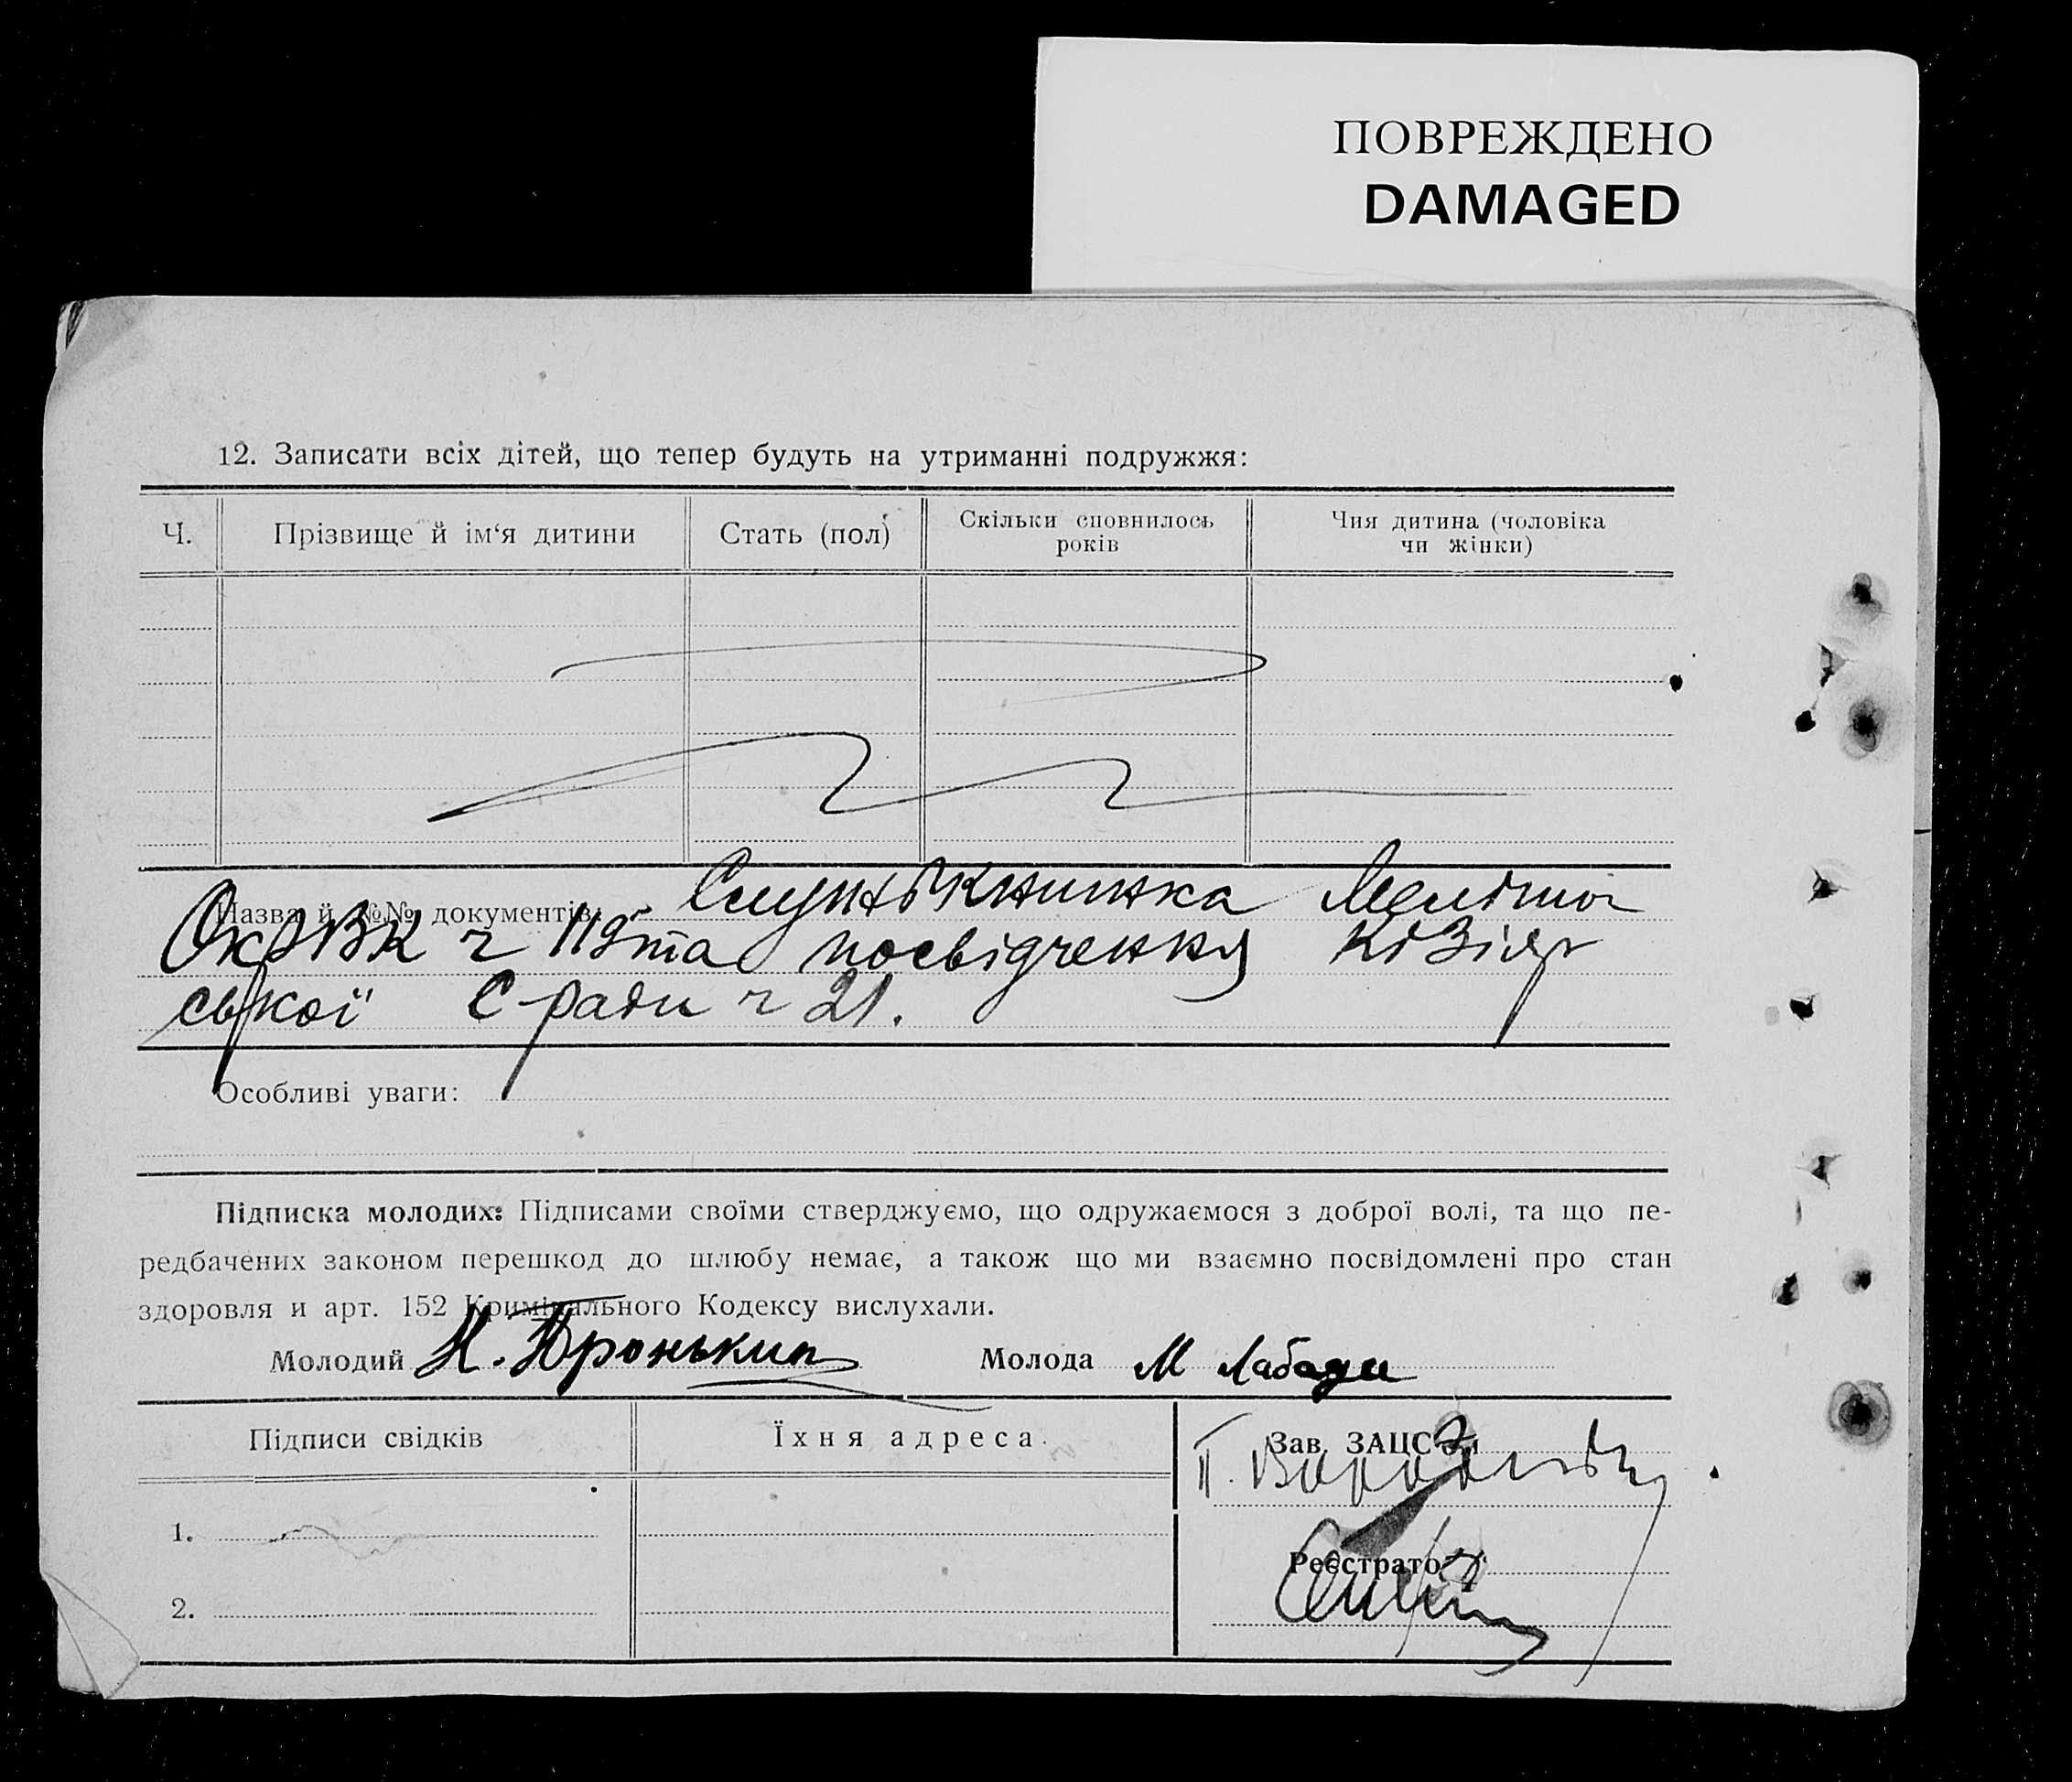 ПОВРЕЖДЕНО
DAMAGED
12. Записати всіх дітей, що тепер будуть на утриманні подружжя:
Ч. Прізвище й ім‘я дитини Стать (пол) Скільки сповнилось років Чия дитина (чоловіка чи жінки)
Назва й №№ документів: книжка
ч та посвідчення
ської С ради ч 21.
Особливі уваги:
Підписка молодих: Підписами своїми стверджуємо, що одружаємося з доброї волі, та що пе-
редбачених законом перешкод до шлюбу немає, а також що ми взаємно посвідомлені про стан
здоровля и арт. 152 Кримінального Кодексу вислухали.
Молодий Молода М
Підписи свідків Їхня адреса. Зав. ЗАЦС'ом
П.
1. Реєстратор
2.